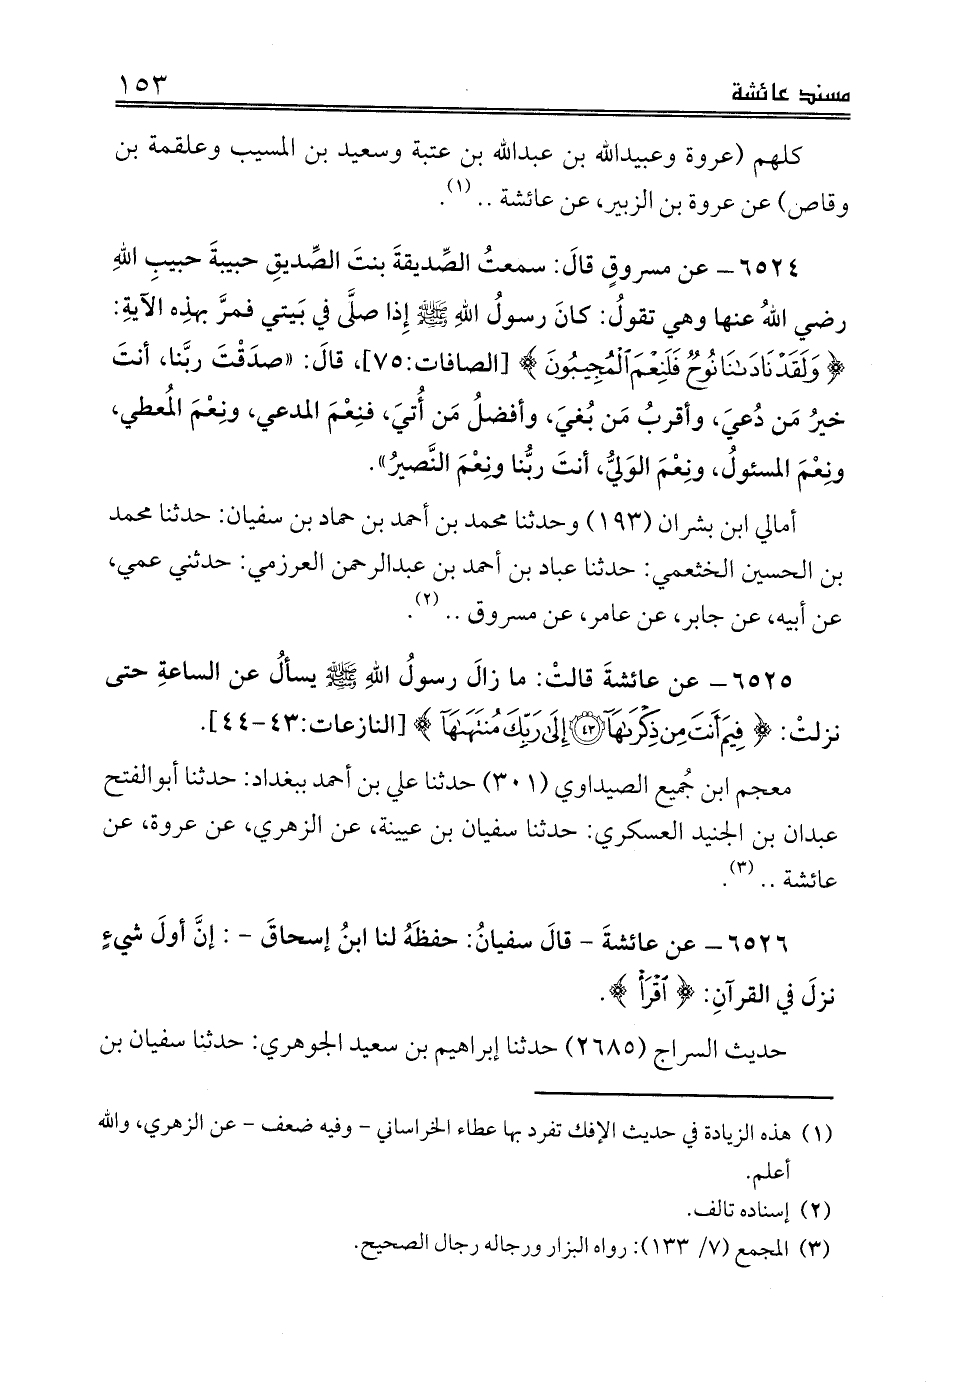 مسند عائشة ١٥٣
كلهم (عروة وعبيدالله بن عبدالله بن عتبة وسعيد بن المسيب وعلقمة بن
وقاص) عن عروة بن الزبير، عن عائشة ..(١).
٦٥٢٤ – عن مسروقٍ قالَ: سمعتُ الصِّديقةَ بنتَ الصِّديقِ حبيبةَ حبيبِ اللهِ
رضي اللهُ عنها وهي تقولُ: كانَ رسولُ اللهِ ﷺ إذا صلَّى في بَيتي فمرَّ بهذِه الآيةِ:
﴿وَلَقَدْ نَادَىٰنَا نُوحٌ فَلَنِعْمَ ٱلْمُجِيبُونَ﴾ [الصافات:٧٥]، قالَ: «صدَقْتَ ربَّنا، أنتَ
خيرُ مَن دُعيَ، وأقربُ مَن بُغيَ، وأفضلُ مَن أُتيَ، فنِعْمَ المدعي، ونِعْمَ المُعطي،
ونِعْمَ المسئولُ، ونِعْمَ الوَليُّ، أنتَ ربُّنا ونِعْمَ النَّصيرُ».
أمالي ابن بشران (١٩٣) وحدثنا محمد بن أحمد بن حماد بن سفيان: حدثنا محمد
بن الحسين الخثعمي: حدثنا عباد بن أحمد بن عبدالرحمن العرزمي: حدثني عمي،
عن أبيه، عن جابر، عن عامر، عن مسروق ..(٢).
٦٥٢٥ – عن عائشةَ قالتْ: ما زالَ رسولُ اللهِ ﷺ يسألُ عن الساعةِ حتى
نزلتْ: ﴿فِيمَ أَنتَ مِن ذِكْرَىٰهَآ ٤٣ إِلَىٰ رَبِّكَ مُنتَهَىٰهَآ﴾ [النازعات:٤٣-٤٤].
معجم ابن جُميع الصيداوي (٣٠١) حدثنا علي بن أحمد ببغداد: حدثنا أبوالفتح
عبدان بن الجنيد العسكري: حدثنا سفيان بن عيينة، عن الزهري، عن عروة، عن
عائشة ..(٣).
٦٥٢٦ – عن عائشةَ – قالَ سفيانُ: حفظَهُ لنا ابنُ إسحاقَ – : إنَّ أولَ شيءٍ
نزلَ في القرآنِ: ﴿ٱقْرَأْ﴾.
حديث السراج (٢٦٨٥) حدثنا إبراهيم بن سعيد الجوهري: حدثنا سفيان بن
(١) هذه الزيادة في حديث الإفك تفرد بها عطاء الخراساني – وفيه ضعف – عن الزهري، والله
أعلم.
(٢) إسناده تالف.
(٣) المجمع (٧/ ١٣٣): رواه البزار ورجاله رجال الصحيح.